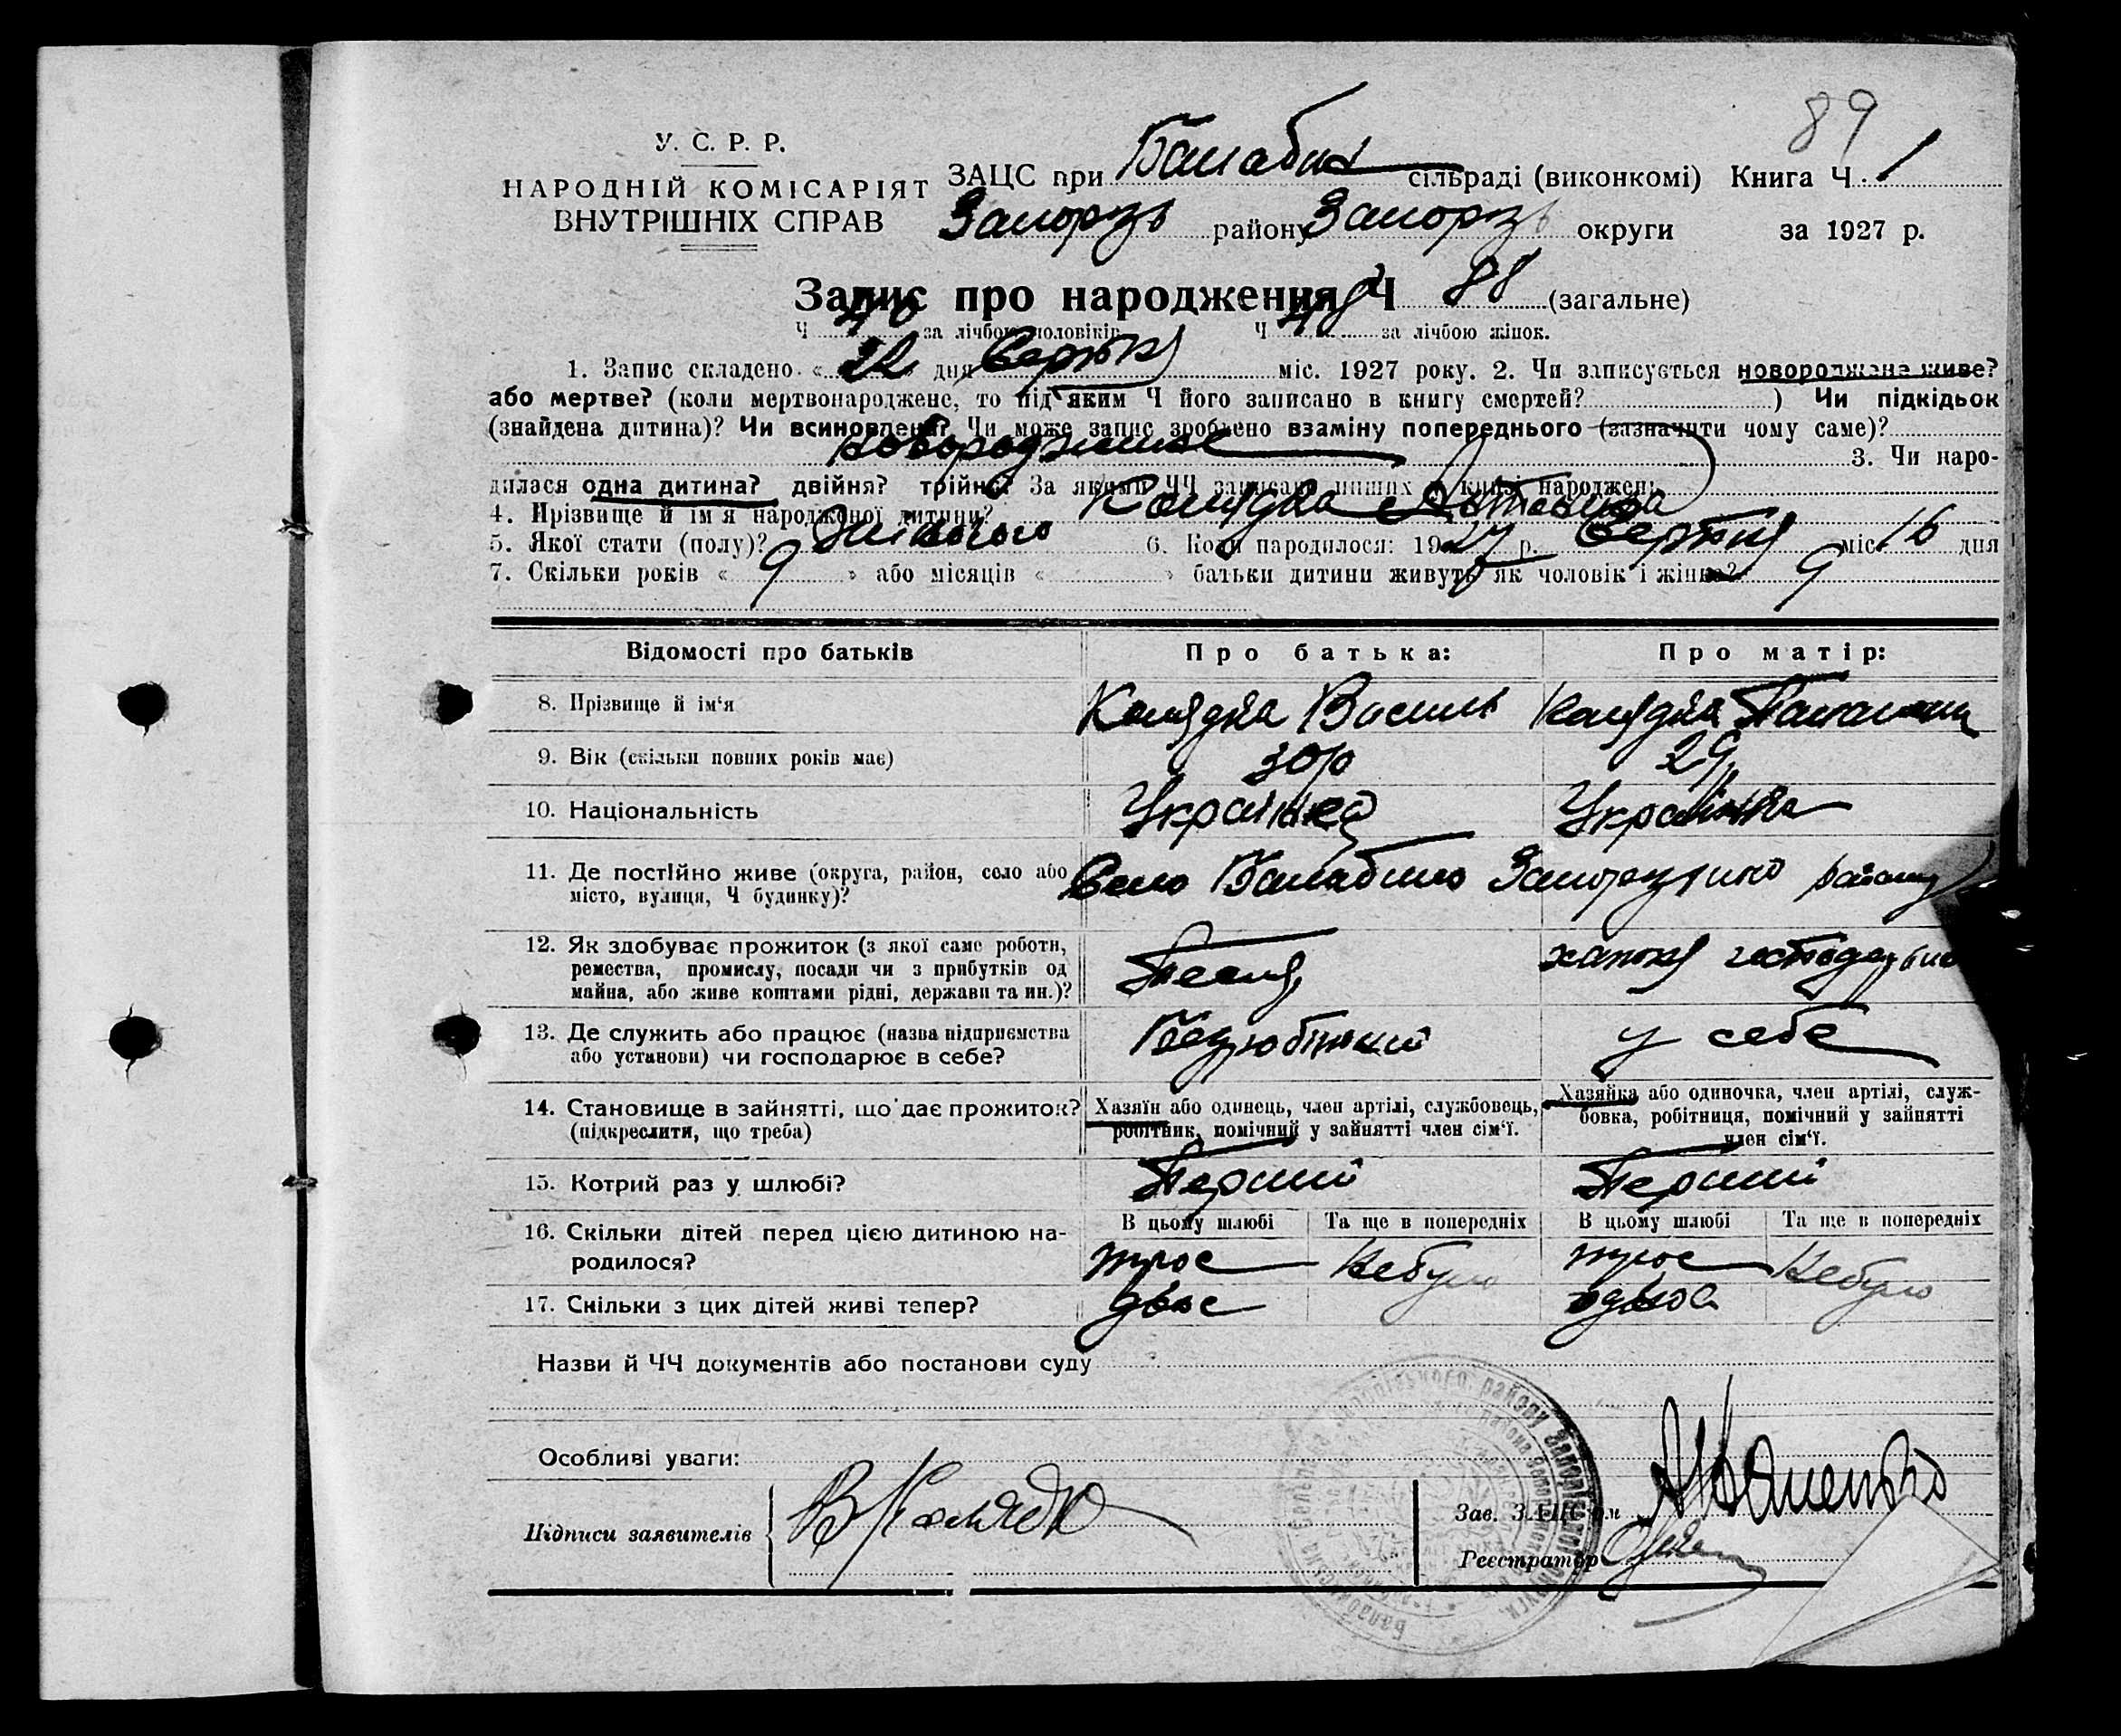 89
У. С. Р. Р.
НАРОДНІЙ КОМІСАРІЯТ
ВНУТРІШНІХ СПРАВ
ЗАЦС при Балабин сільраді (виконкомі) Книга Ч. 1
Запорізь району Запорізь округи за 1927 р.
Запис про народження Ч 88 (загальне)
Ч 40 за лічбою чоловіків Ч 48 за лічбою жінок.
1. Запис складено «22» дня Серпня міс. 1927 року. 2. Чи записується новороджене живе?
або мертве? (коли мертвонароджене, то під яким Ч його записано в книгу смертей? ) Чи підкідьок
(знайдена дитина)? Чи всиновлена? Чи може запис зроблено взаміну попереднього (зазначити чому саме)?
новороджене 3. Чи наро-
дилася одна дитина? двійня? трійня? За якими ЧЧ записано инших в книзі народжень
4. Прізвище й ім'я народженої дитини? Колядка
5. Якої стати (полу)? Жіночого 6. Коли народилося: 1927 р. Серпня міс. 16 дня
7. Скільки років «9» або місяців « » батьки дитини живуть як чоловік і жінка? 9
Відомості про батьків Про батька: Про матір:
8. Прізвище й ім'я Колядка Василь Колядка
9. Вік (скільки повних років має) 30р 29р
10. Національність Українец Українка
11. Де постійно живе (округа, район, село або Село Балабино Запорізького району
місто, вулиця, Ч будинку)?
12. Як здобуває прожиток (з якої саме роботи, Тесля хатня господарьные
ремества, промислу, посади чи з прибутків од
майна, або живе коштами рідні, держави та ин.)?
13. Де служить або працює (назва підприємства у себе
або установи) чи господарює в себе?
14. Становище в зайнятті, що дає прожиток? Хазяїн або одинець, член артілі, службовець, Хазяйка або одиночка, член артілі, служ-
(підкреслити, що треба) робітник, помічний у зайнятті член сім'ї. бовка, робітниця, помічний у зайнятті
член сім'ї.
15. Котрий раз у шлюбі? Перший Перший
16. Скільки дітей перед цією дитиною на- В цьому шлюбі Та ще в попередніх В цьому шлюбі Та ще в попередніх
родилося? трое Небуло трое Небуло
17. Скільки з цих дітей живі тепер? двое двоє
Назви й ЧЧ документів або постанови суду
Особливі уваги:
Підписи заявителів В Колядка
Зав. ЗАЦС'ом
Реєстратор